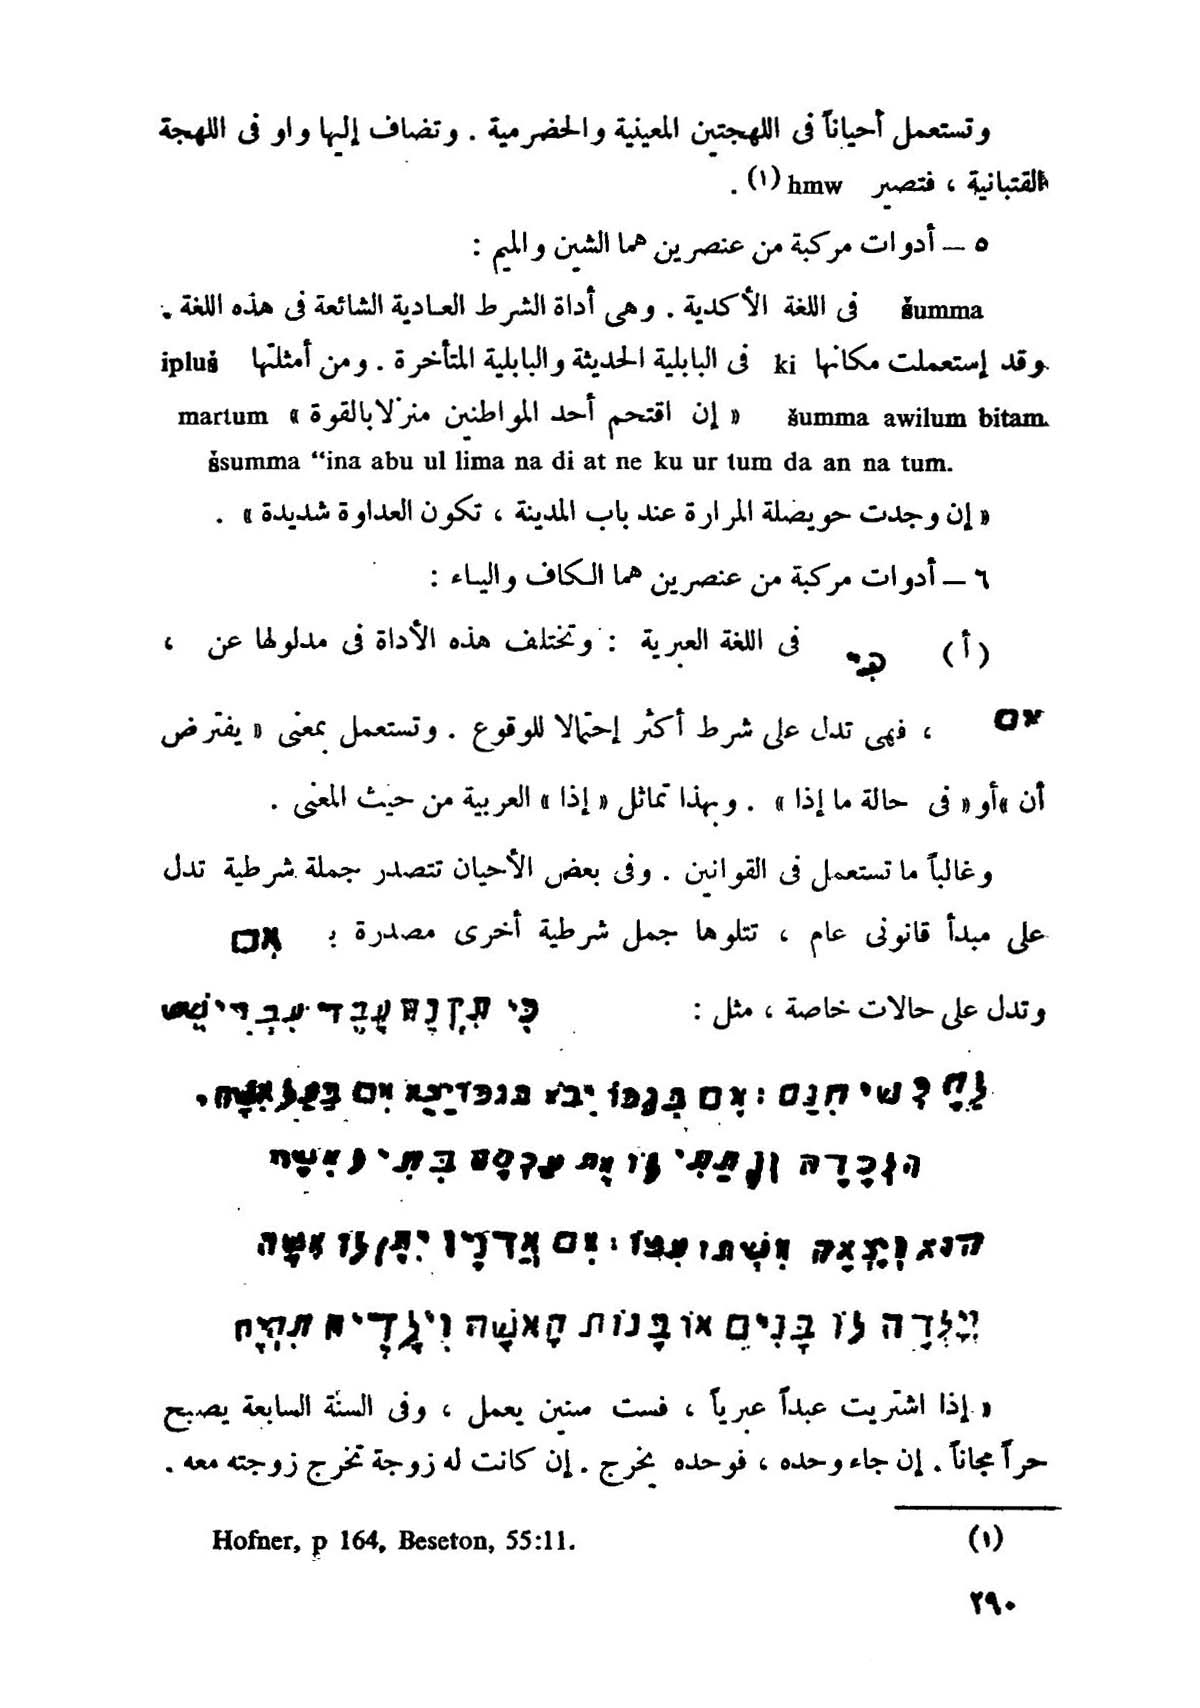 وتستعمل أحياناً فى اللهجتين المعينية والحضرمية . وتضاف إليها واو فى اللهجة
القتبانية ، فتصير hmw (١) .
٥ — أدوات مركبة من عنصرين هما الشين والميم :
šumma فى اللغة الأكدية . وهى أداة الشرط العادية الشائعة فى هذه اللغة .
وقد إستعملت مكانها ki فى البابلية الحديثة والبابلية المتأخرة . ومن أمثلتها ipluš
šumma awilum bitam « إن اقتحم أحد المواطنين منزلا بالقوة » martum
šsumma “ina abu ul lima na di at ne ku ur tum da an na tum.
« إن وجدت حويصلة المرارة عند باب المدينة ، تكون العداوة شديدة » .
٦ — أدوات مركبة من عنصرين هما الكاف والياء :
(أ) כִּי فى اللغة العبرية : وتختلف هذه الأداة فى مدلولها عن ،
אם ، فهى تدل على شرط أكثر إحتمالا للوقوع . وتستعمل بمعنى « يفترض
أن » أو « فى حالة ما إذا » . وبهذا تماثل « إذا » العربية من حيث المعنى .
وغالباً ما تستعمل فى القوانين . وفى بعض الأحيان تتصدر جملة شرطية تدل
على مبدأ قانونى عام ، تتلوها جمل شرطية أخرى مصدرة بـ אִם
وتدل على حالات خاصة ، مثل : כִּי תִקְנֶה עֶבֶד עִבְרִי שֵׁשׁ
חִנָּם : אִם בְּגַפּוֹ יבא אם
בָּנִים אוֹ בָנוֹת הָאִשָּׁה תִּהְיֶה
« إذا اشتريت عبداً عبرياً ، فست سنين يعمل ، وفى السنة السابعة يصبح
حراً مجاناً . إن جاء وحده ، فوحده يخرج . إن كانت له زوجة تخرج زوجته معه .
(١) Hofner, p 164, Beseton, 55:11.
٢٩٠